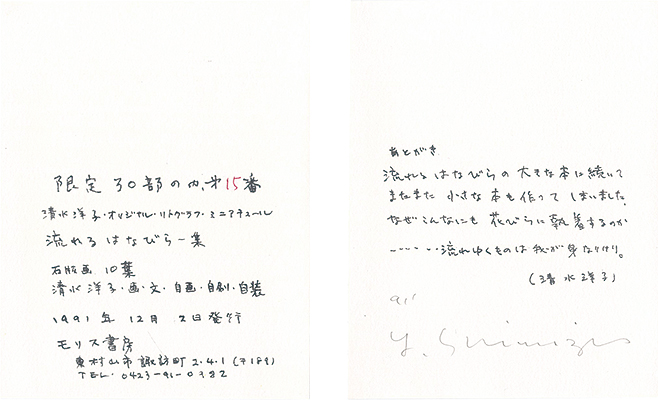 限定30部の内、第15番
清水洋子・オリジナル・リトグラフ・ミニアチュール
流れるはなびら一集
石版画 10葉
清水洋子・画・文・自画・自刷・自装
1991年12月2日発行
モリス書房
東村山市諏訪町2-4-1(〒189)
TEL. 0423-91-0382
あとがき
流れるはなびらの大きな本に続いて
またまた小さな本も作ってしまいました。
なぜこんなにも花びらに執着するのか
‥‥‥流れゆくものは我が身なりけり。
(清水洋子)
91'
Y. Shimizu